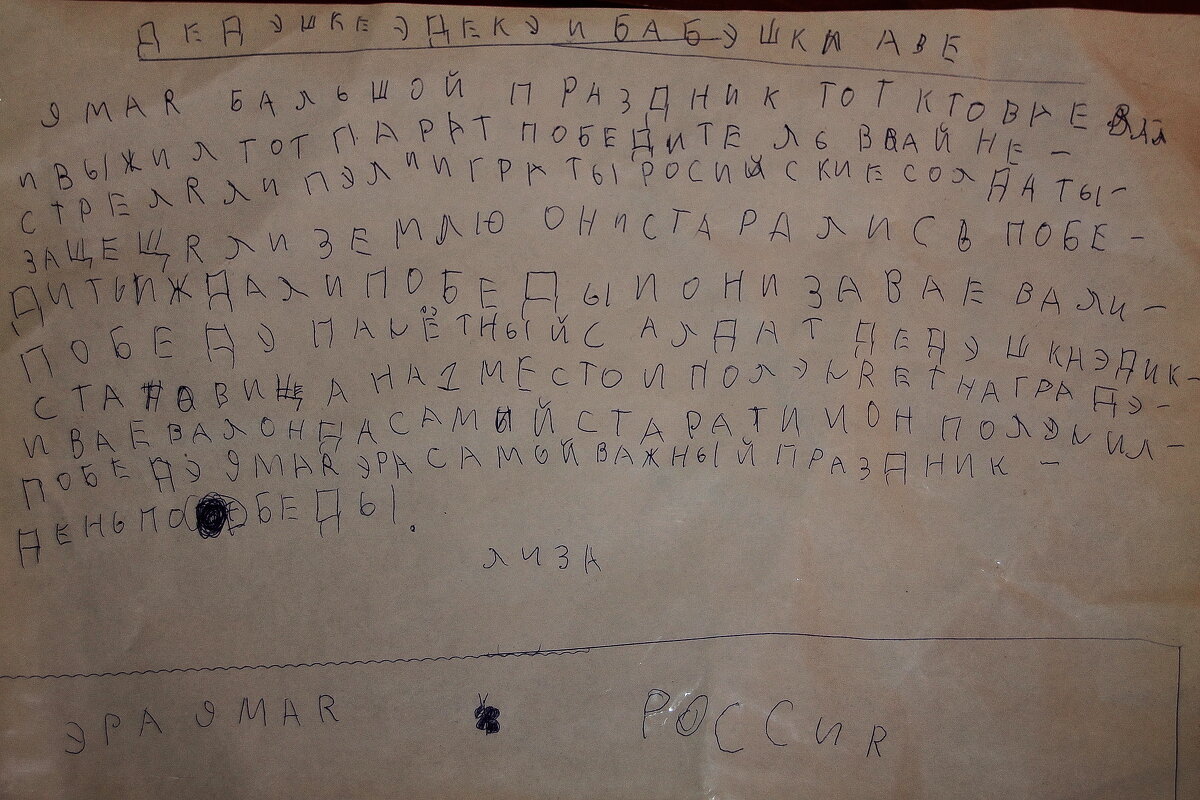 ДЕДЭШКЕЭДЕКЭ И БАБЭШКИ АВЕ
9 МАЯ БАЛЬШОЙ ПРАЗДНИК ТОТ КТО ВАЕВАЛ
И ВЫЖИЛ ТОТ ПАРАТ ПОБЕДИТЕЛЬ ВВАЙНЕ-
СТРЕЛЯЛИ ПЭЛИ ИГРАТЫ РОСИЙСКИЕ СОЛДАТЫ-
ЗАЩЕЩЯЛИ ЗЕМЛЮ ОНИ СТАРАЛИСЬ ПОБЕ-
ДИТЬ И ЖДАЛИ ПОБЕДЫ И ОНИ ЗАВАЕВАЛИ-
ПОБЕДЭ ПАЧЁТНЫЙ САЛДАТ ДЕДЭШКАЭДИК-
СТАНОВИЩА НА 1 МЕСТО И ПОЛЭЧЯЕТ НАГРАДЭ-
И ВАЕВАЛ ОН ДАСАМЫЙ СТАРАТИ И ОН ПОЛЭЧИЛ-
ПОБЕДЭ 9 МАЯ ЭРА САМОЙ ВАЖНЫЙ ПРАЗДНИК-
ДЕНЬ ПОБЕДЫ.
ЛИЗА
ЭРА 9 МАЯ РОССИЯ